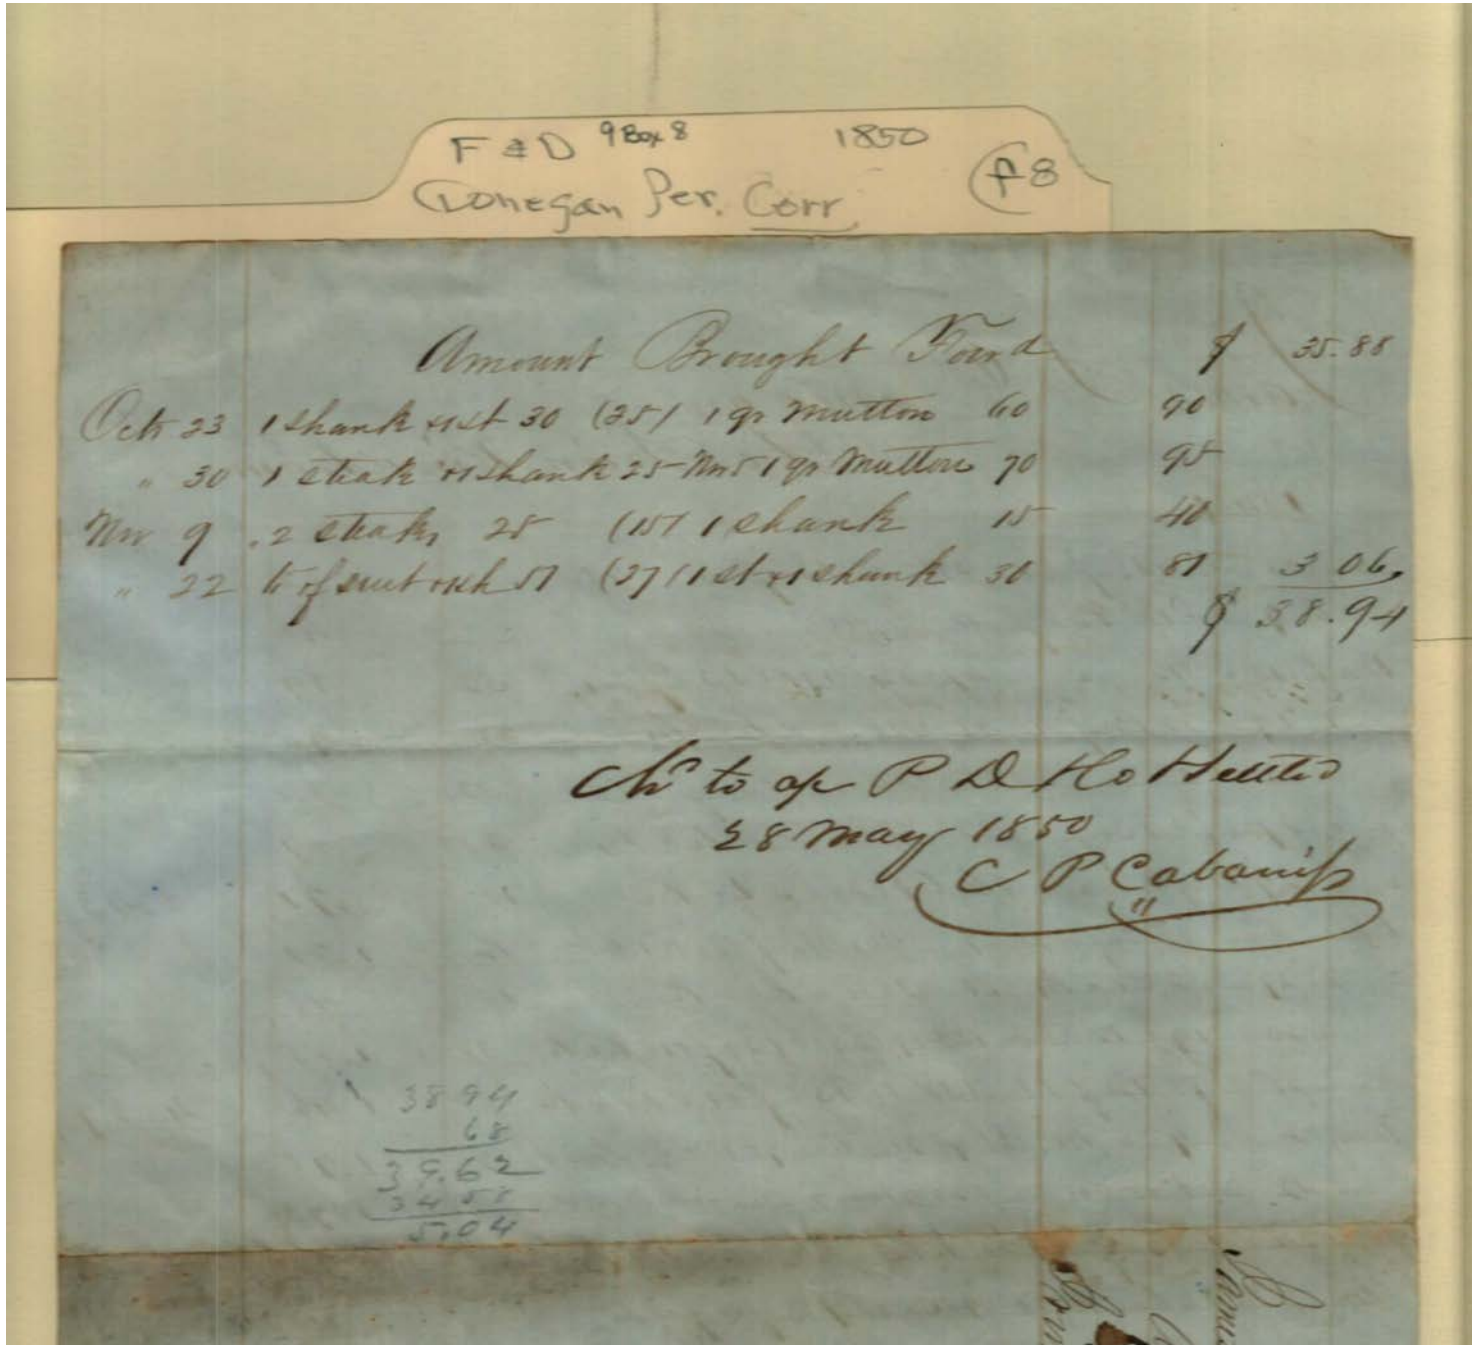 F & D 9 Box 8 1850
Donegan Per. Corr f 8
Amount Brought Ford $ 35.88
Octr 23 1 shank & 1 st 30 (25/ 1 qr Mutton 60 90
" 30 1 steak & 1 shank 25 Nov 5 1 qr Mutton 70 95
Nov 9 2 steaks 25 (15/ 1 shank 15 40
" 22 of suet & 1 sh 51 (27/ 1 st & 1 shank 30 81 3 06
$ 38.94
to P D
28 May 1850
C P Cabaniss
38 94
68
39.62
34 58
5,04